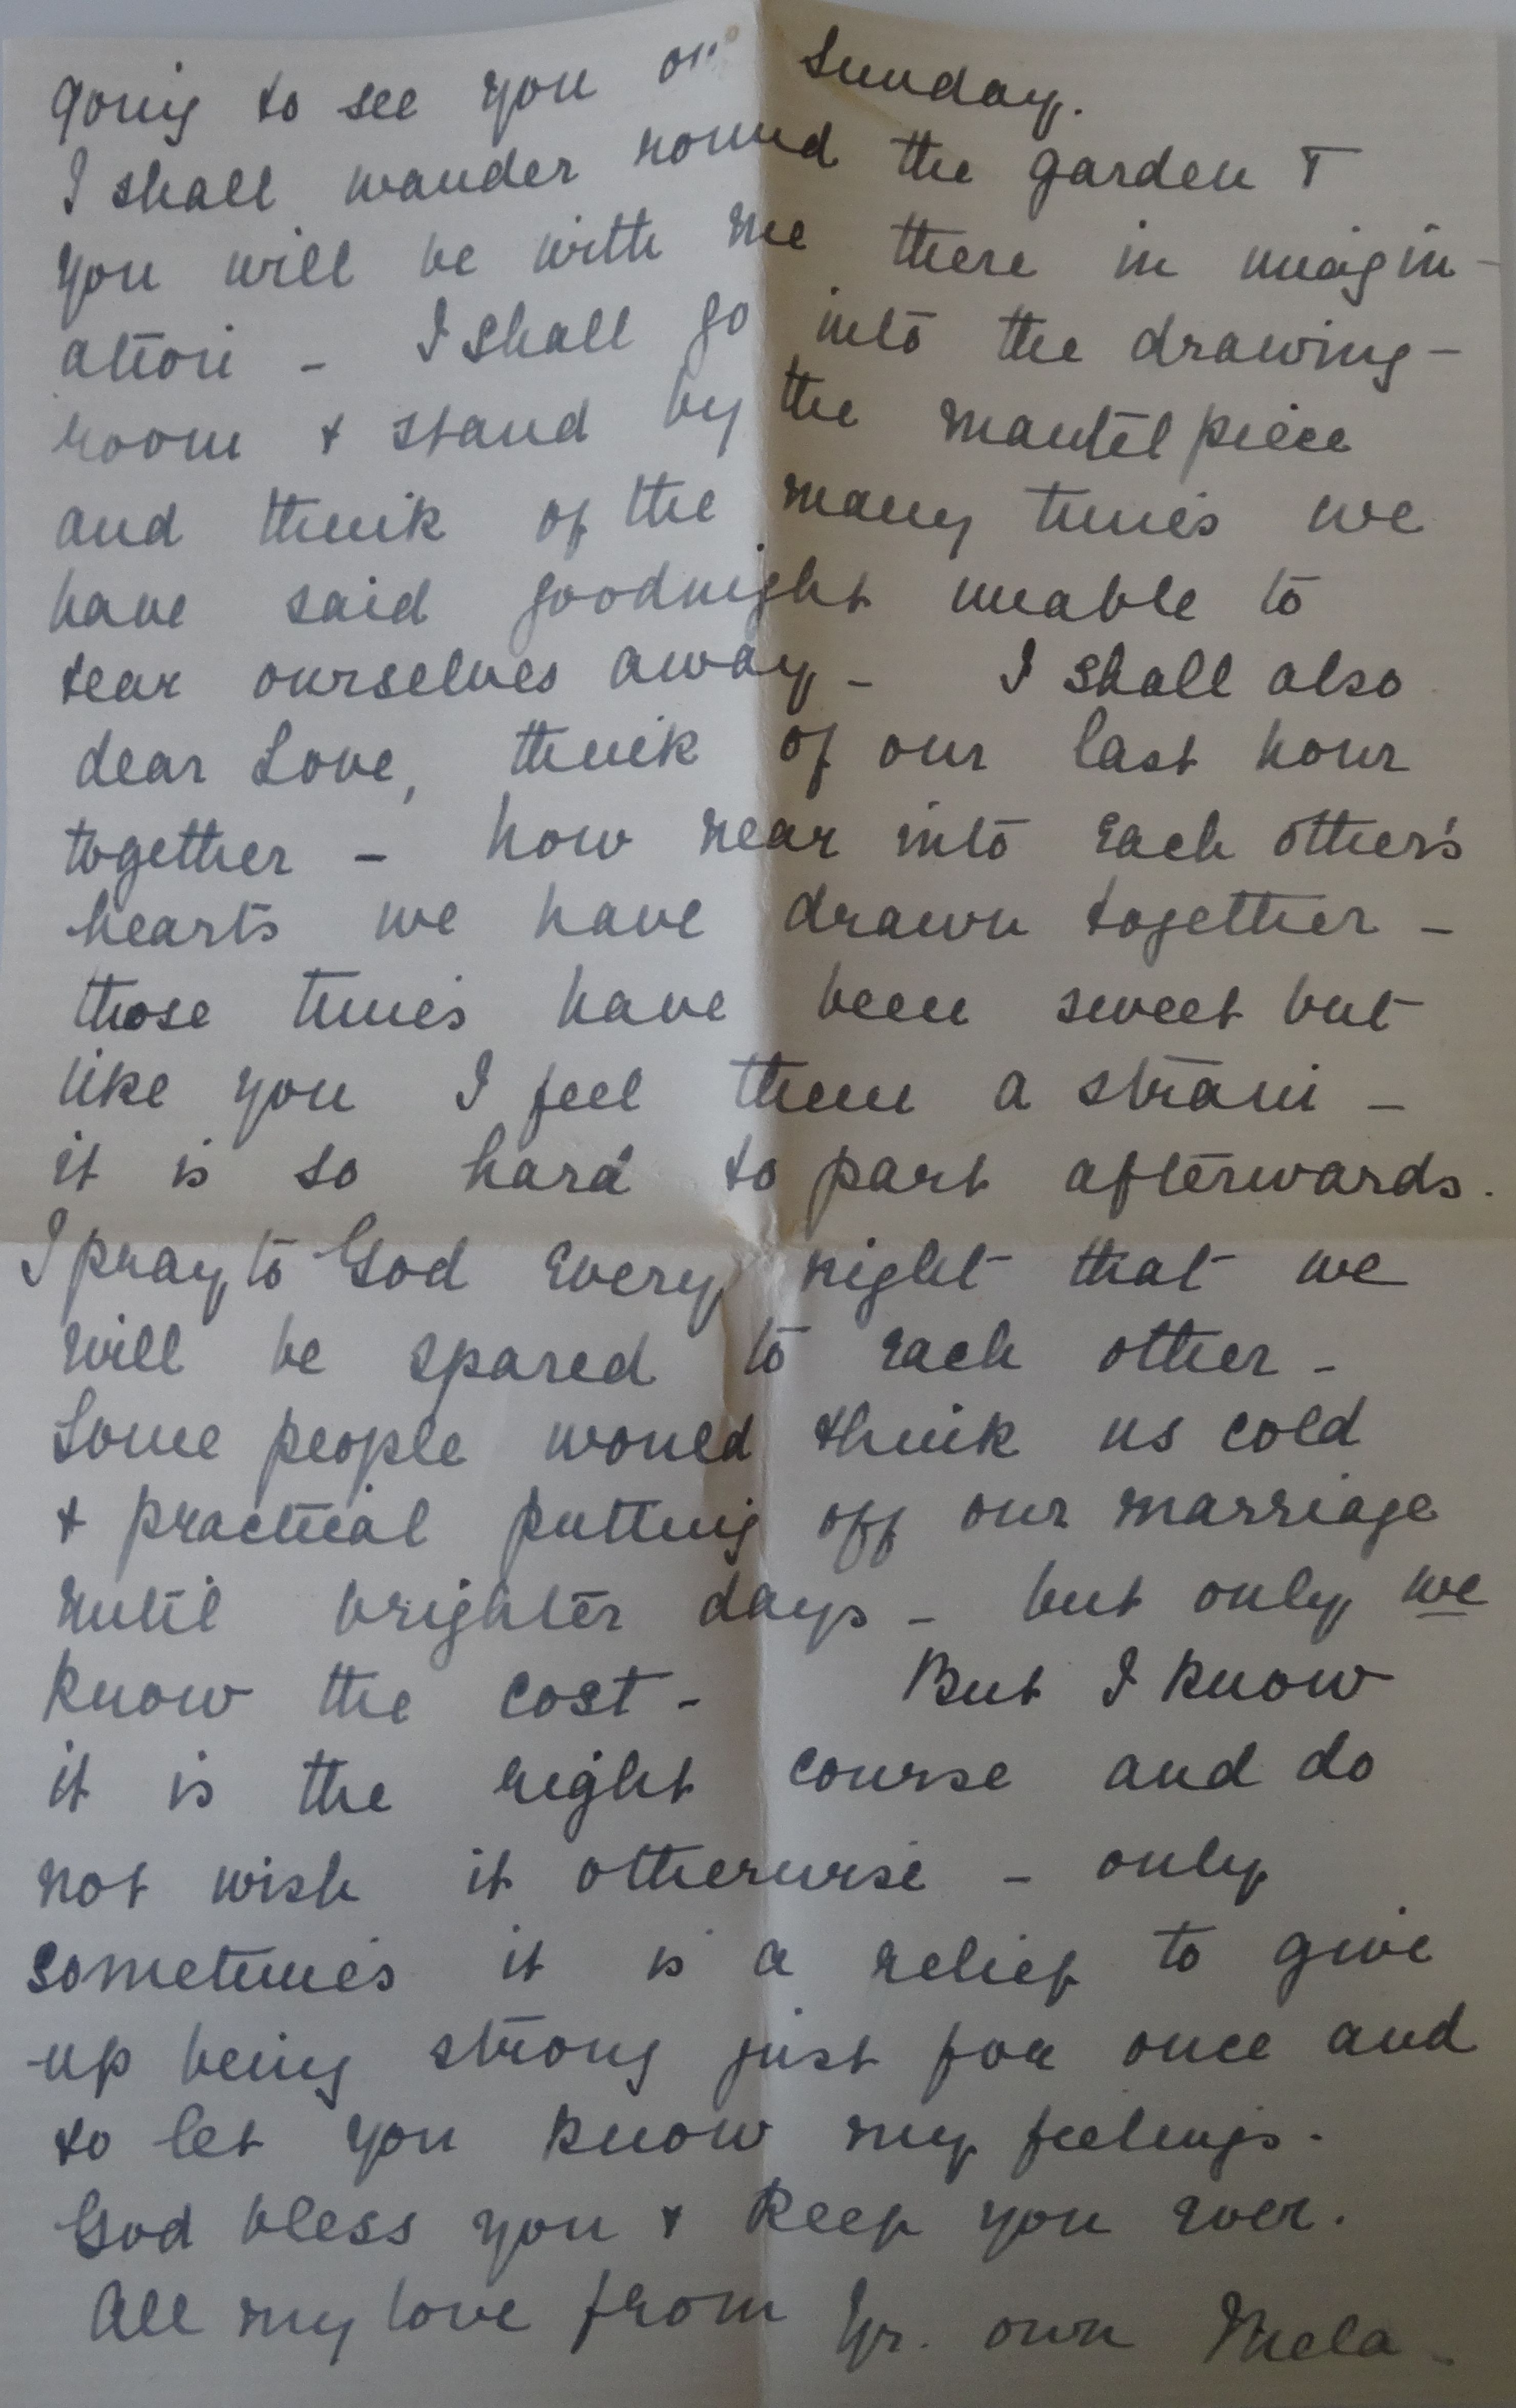 going to see you on Sunday.
I shall wander round the garden &
you will be with me there in imagin-
ation - I shall go into the drawing-
room & stand by the mantelpiece
and think of the many times we
have said goodnight unable to
tear ourselves away - I shall also
dear Love, think of our last hour
together - how near into each other's
hearts we have drawn together -
those times have been sweet but
like you I feel them a strain -
it is so hard to part afterwards.
I pray to God every night that we
will be spared to each other -
Some people would think us cold
& practical putting off our marriage
until brighter days - but only we
know the cost - But I know
it is the right course and do
not wish it otherwise - only
sometimes it is a relief to give
up being strong just for once and
to let you know my feelings.
God bless you & keep you ever.
All my love from Yr. own Mela -